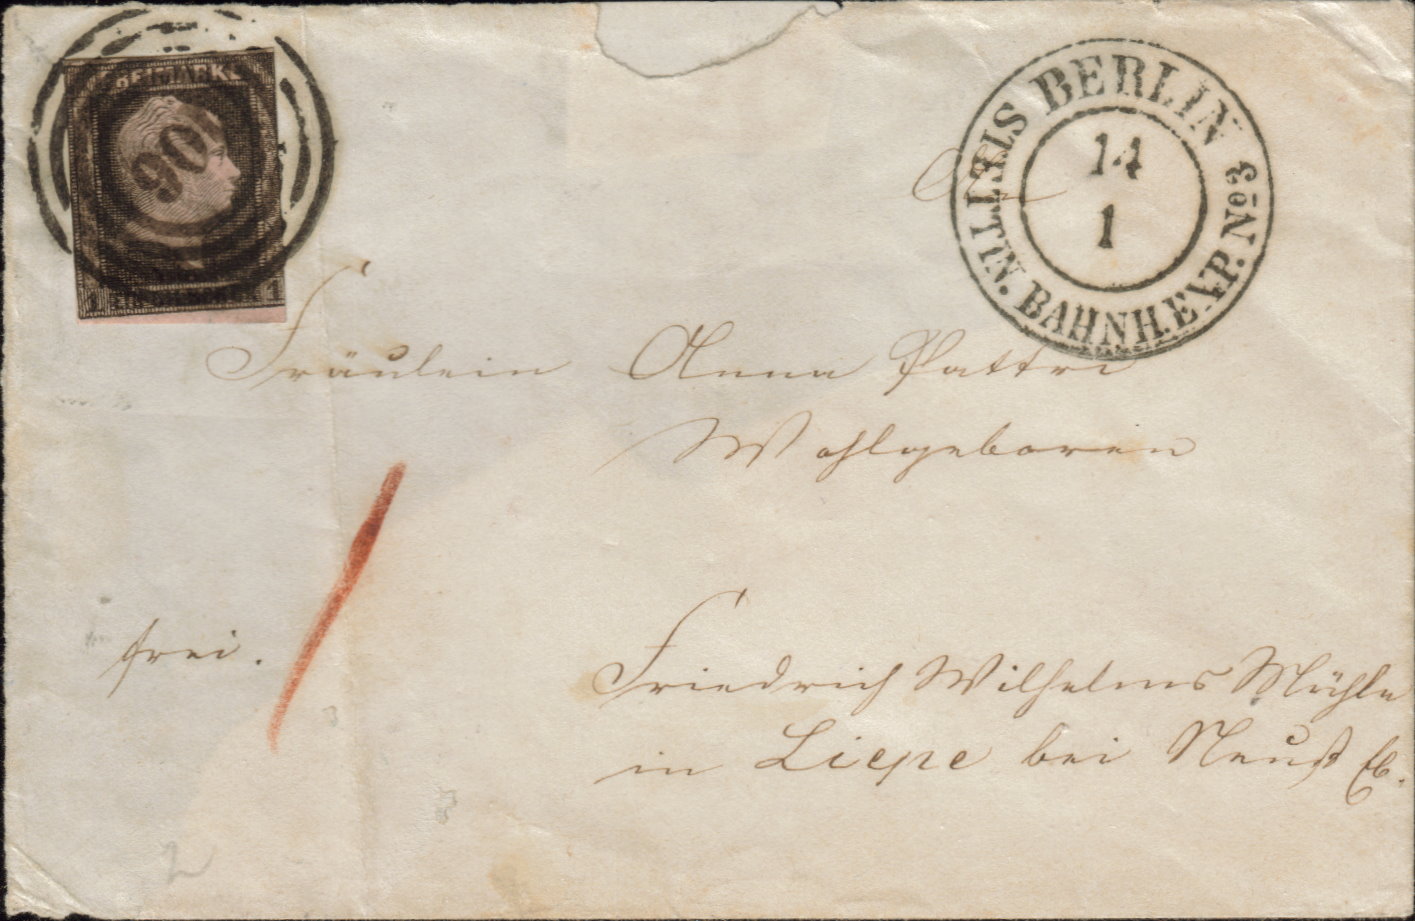 FREIMARKE
106
1 1
STETTIN. BAHNH. EXP. No 3 BERLIN
14
1
Fräulein Anna Pattri
Wohlgeboren
frei.
Friedrich Wilhelms Mühle
in Liepe bei Neust Eb.
2